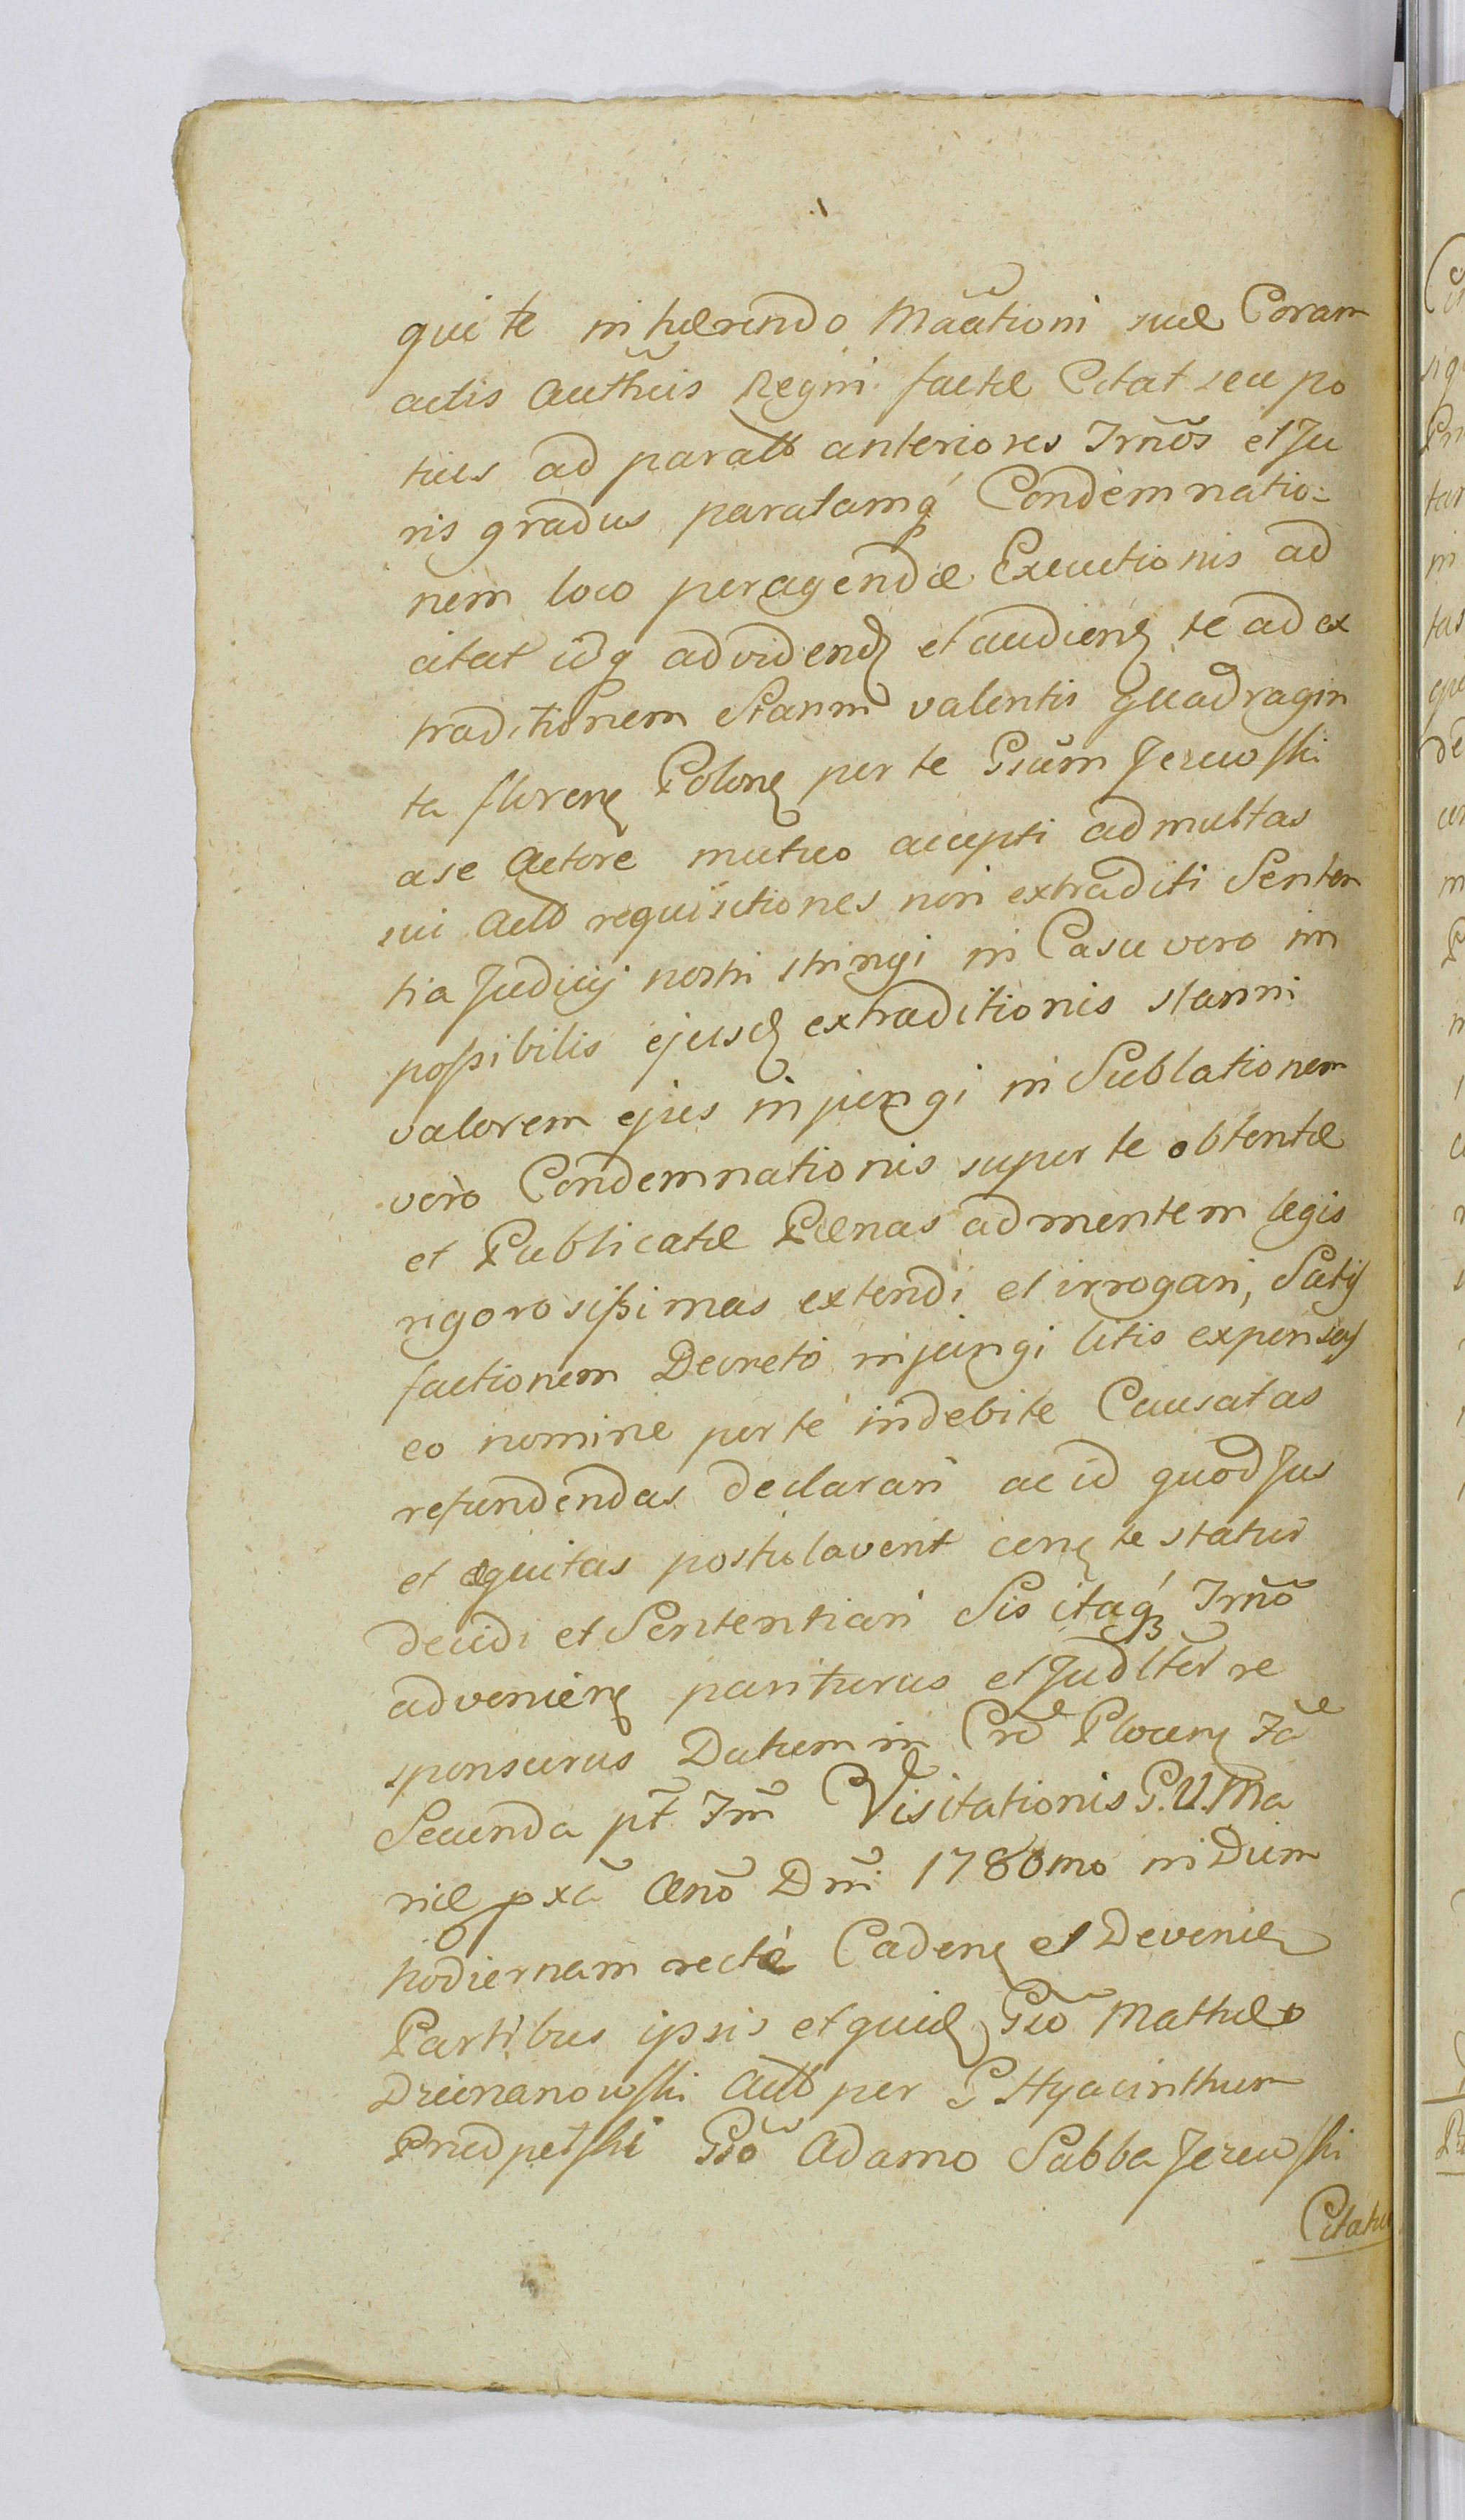 qui te inhærendo Maãtioni suæ Coram
actis Authĩcis Regni factæ Citat seu po
tius ad parat anteriores Trm̃os et Ju
ris gradus paratamq́ Condemnatio:
nem loco peragendæ Executionis ad
citat idq advidend et audiend te ad ex
traditionem Stanni valentis quadragin
ta floren Polon per te Gsũm Jezewski
a se Actore mutuo accepti ad multas
sui Act requisitiones non extraditi Senten
tia Judicij nostri stringi in Casu vero im
possibilis ejusd extraditionis stanni
valorem ejus injungi in Sublationem
vero Condemnationis super te obtentæ
et Publicatæ Pænas ad mentem legis
rigorosissimas extendi et irrogari, Satis
factionem Decreto injungi litis expensas
eo nomine per te indebite Causatas
refundendas declarari ac id quod Jus
et æquitas postulaverit cerñ te statui
decidi et Sententiari Sis itaq́ Trm̃o
advenien pariturus et Judlter re
sponsurus Datum in Crõ Plocen Fã
Secunda pt̃ Fm̃ Visitationis B.V.Ma
riæ pxã Anõ Dni 1780mo in Diem
hodiernam recte Caden et Devenien
Partibus ipsis et quid Gsõ Mathæo
Act per G Hyacinthum
Gsõ Adamo Sabba Jezewski
Citatu